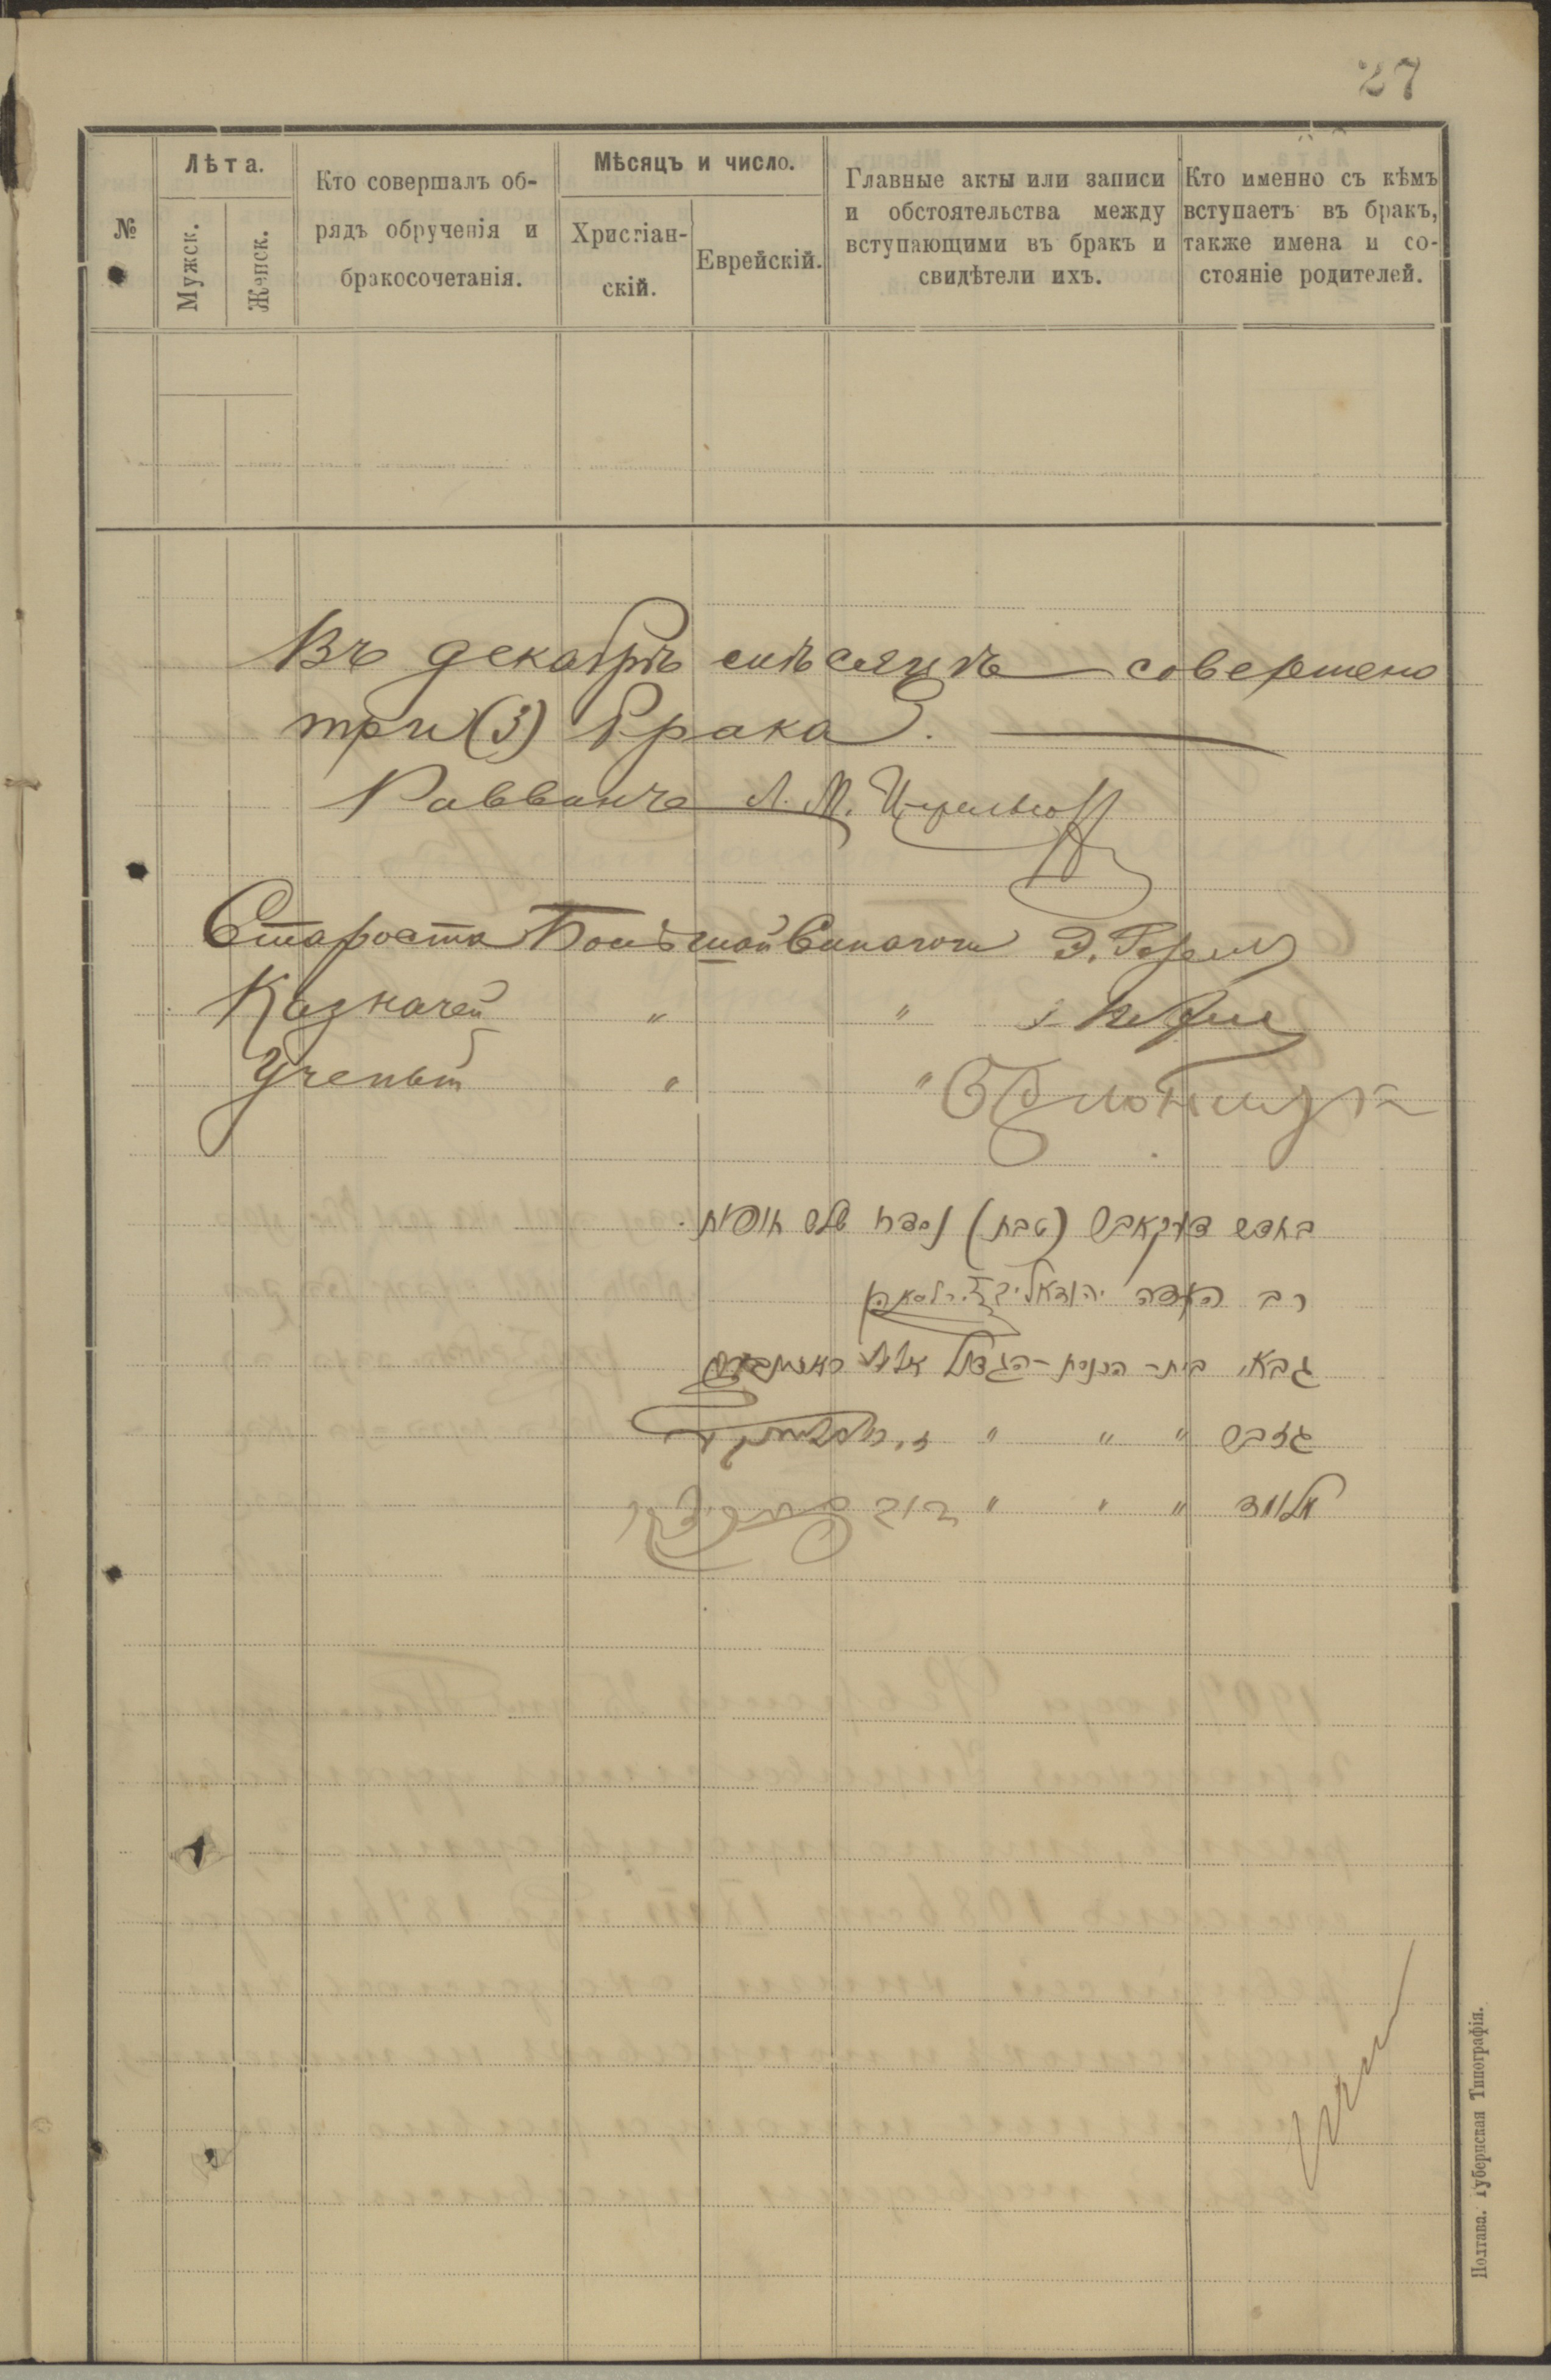 27
№
Лѣта.
Мужск.
Женск.
Кто совершалъ об-
рядъ обрученія и
бракосочетанія.
Мѣсяцъ и число.
Христіан-
скій.
Еврейскій.
Главные акты или записи
и обстоятельства между
вступающими въ бракъ и
свидѣтели ихъ.
Кто именно съ кѣмъ
вступаетъ въ бракъ,
также имена и со-
стояніе родителей.
Въ декабрѣ мѣсяцѣ совершено
три (3) брака.
Раввинъ Л. М.
Староста Большой Синагоги Э.
Казначей " "
Ученый " "
בחדש דעקאבר (טבת) נסדרו שלש חופות.
רב העדה
גבאי בית-הכנסת-הגדול
גזבר " " "
מלומד " " " דוב
Полтава. Губернская Типографія.